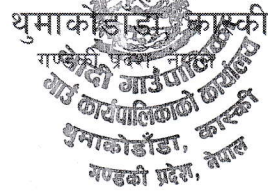 थुमाकोडाँडा, कास्की
गण्डकी प्रदेश, नेपाल
मादी गाउँपालिका
गाउँ कार्यपालिकाको कार्यालय
थुमाकोडाँडा, कास्की
गण्डकी प्रदेश, नेपाल